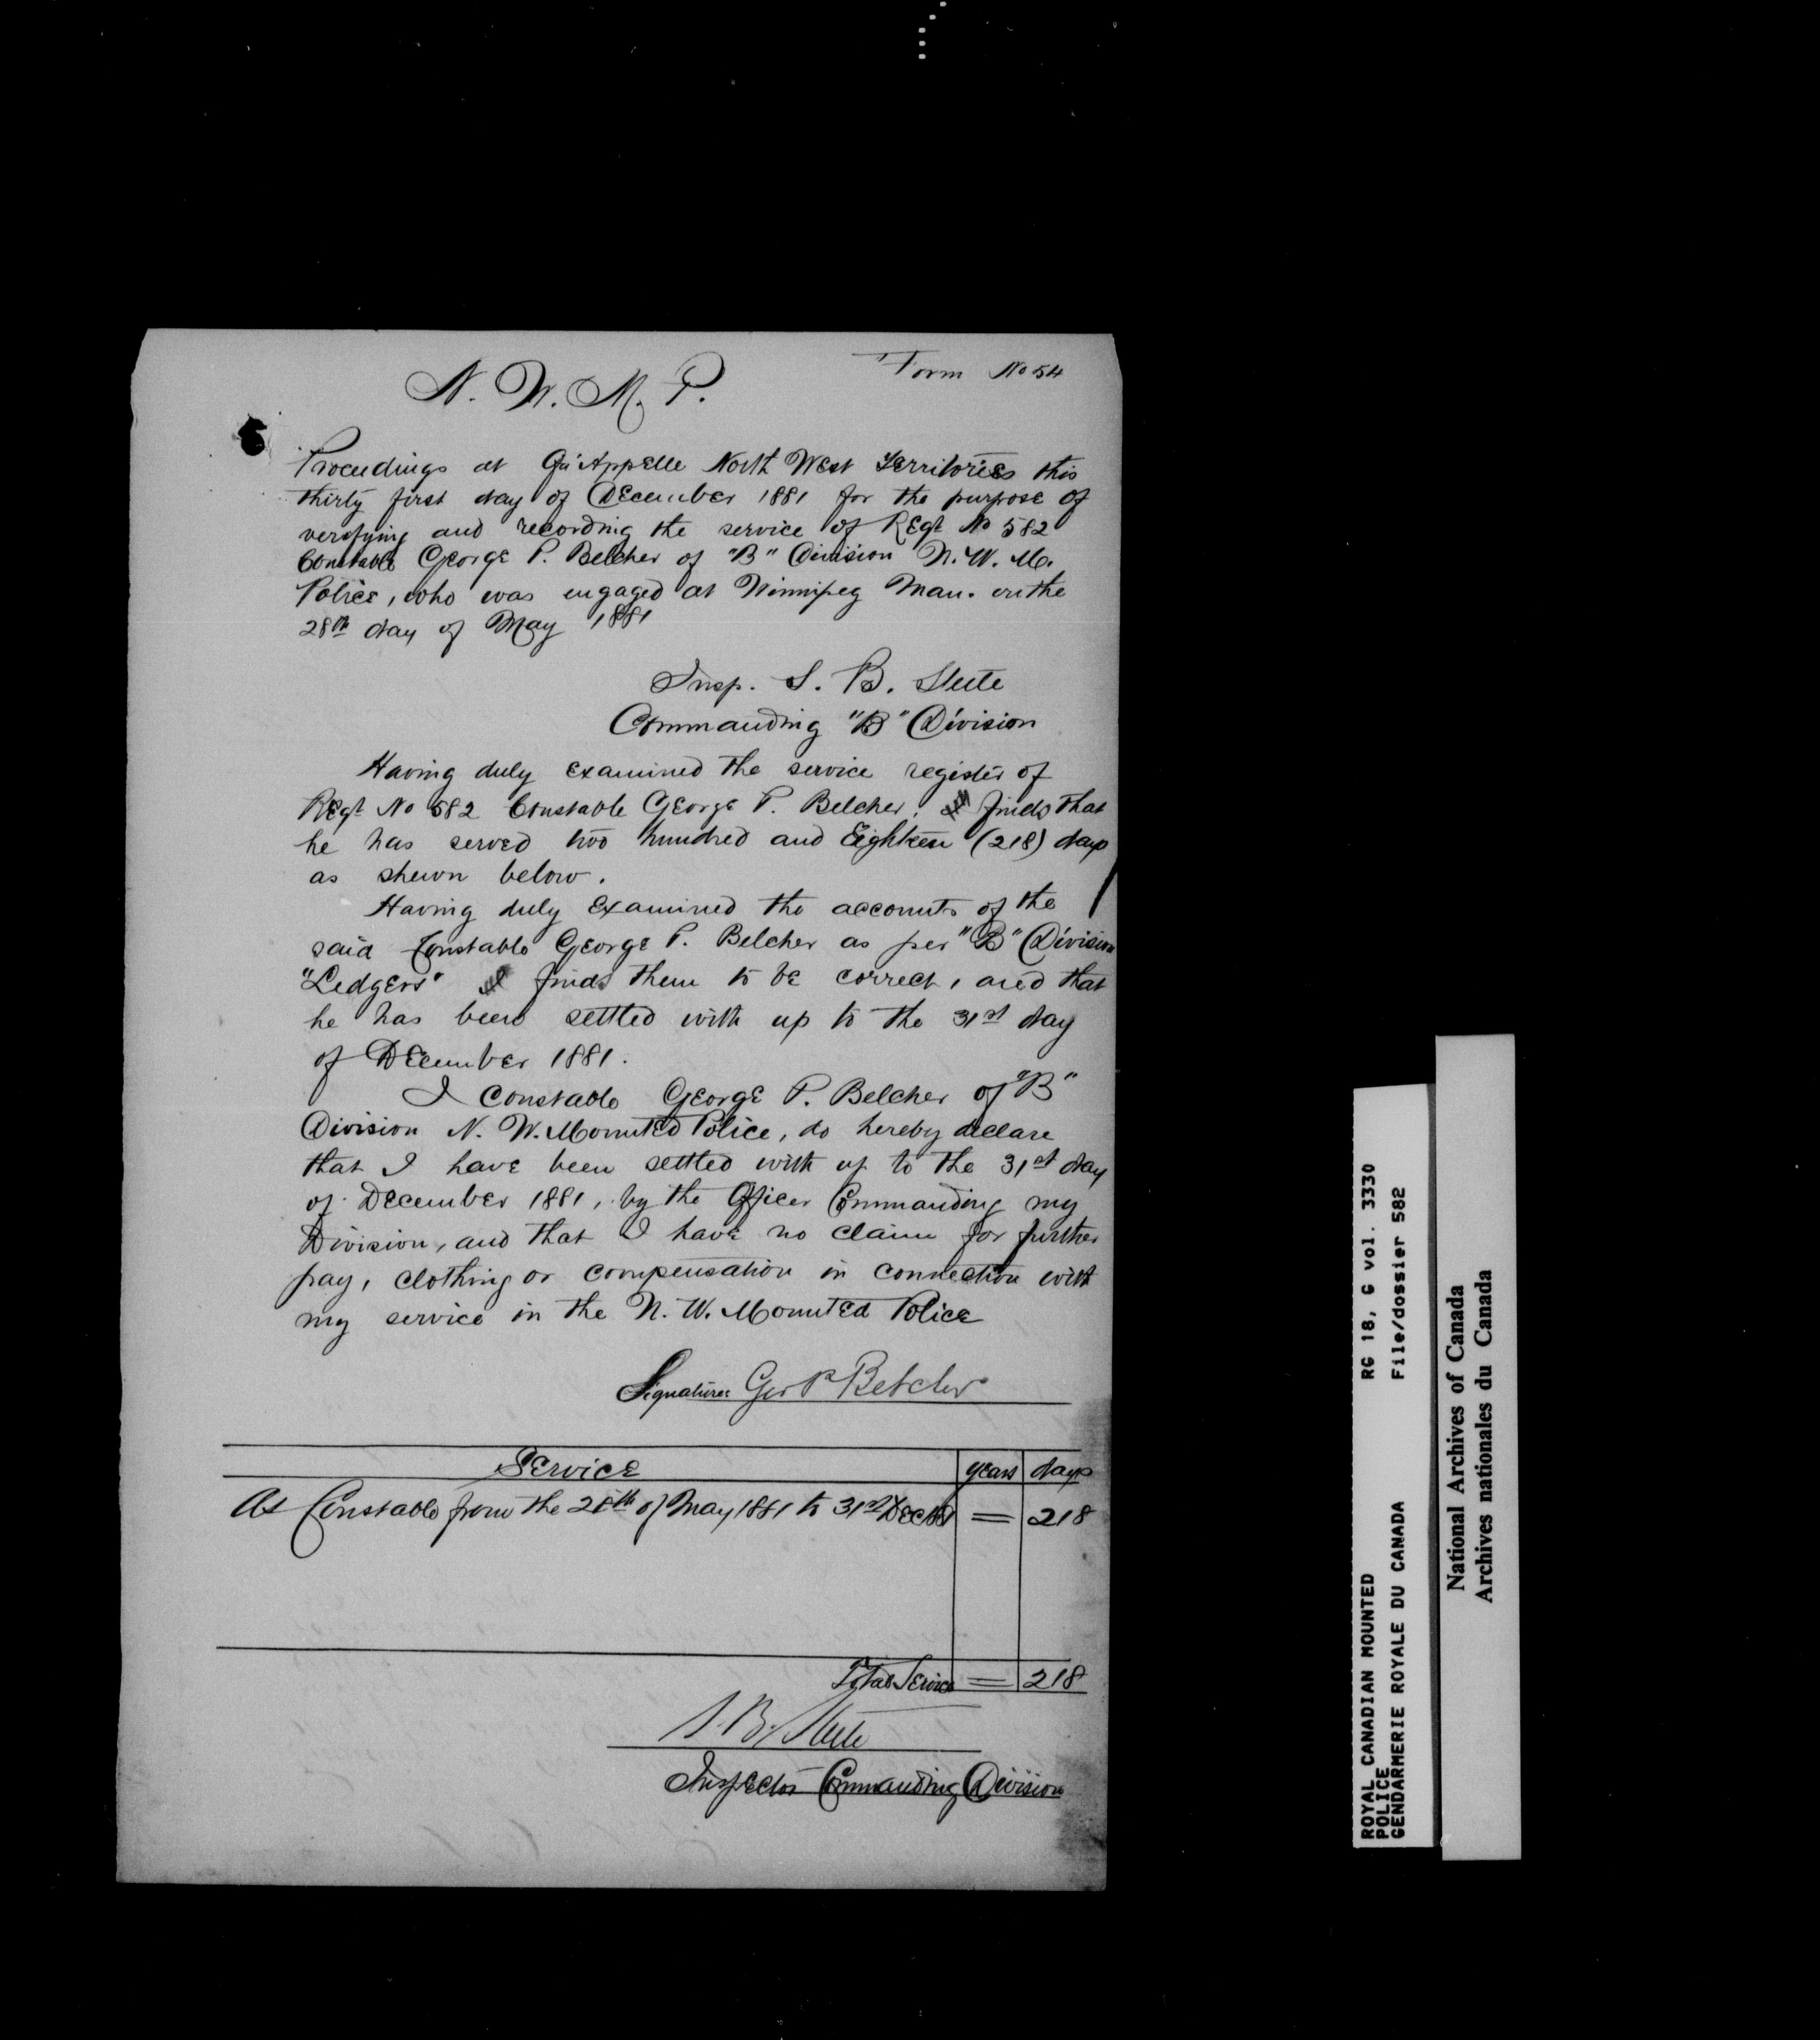 Form No 54
N. W. M. P.
Proceedings at Qu'Appelle North West Territories this
thirty first day of December 1881 for the purpose of
verifying and recording the service of Regt No 582
Constable George P. Belcher of "B" Division N. W. M.
Police, who was engaged at Winnipeg Man. on the
28th day of May 1881
Insp. S. B. Steele
Commanding "B" Division
Having duly examined the service register of
Regt No 582 Constable George P. Belcher, finds that
he has served two hundred and Eighteen (218) days
as shewn below.
Having duly examined the accounts of the
said Constable George P. Belcher as per "B" Division
"Ledgers" finds them to be correct, and that
he has been settled with up to the 31st day
of December 1881.
I Constable George P. Belcher of "B"
Division N. W. Mounted Police, do hereby declare
that I have been settled with up to the 31st day
of December 1881, by the Officer Commanding my
Division, and that I have no claim for further
pay, clothing or compensation in connection with
my service in the N. W. Mounted Police
Signature Geo P Belcher
Service years days
As Constable from the 28th of May 1881 to 31st Dec 1881 = 218
Total Service = 218
S. B. Steele
Inspector Commanding Division
ROYAL CANADIAN MOUNTED RG 18, G vol. 3330
POLICE
GENDARMERIE ROYALE DU CANADA File/dossier 582
National Archives of Canada
Archives nationales du Canada